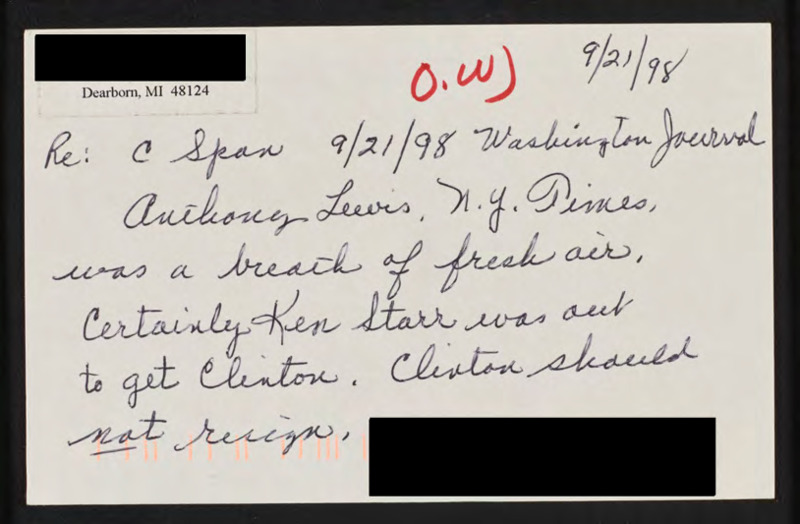 Dearborn, MI 48124
O.W)
9/21/98
Re: C Span 9/21/98 Washington Journal
Anthony Lewis, N.Y. Times,
was a breath of fresh air.
Certainly Ken Starr was out
to get Clinton. Clinton should
not resign.